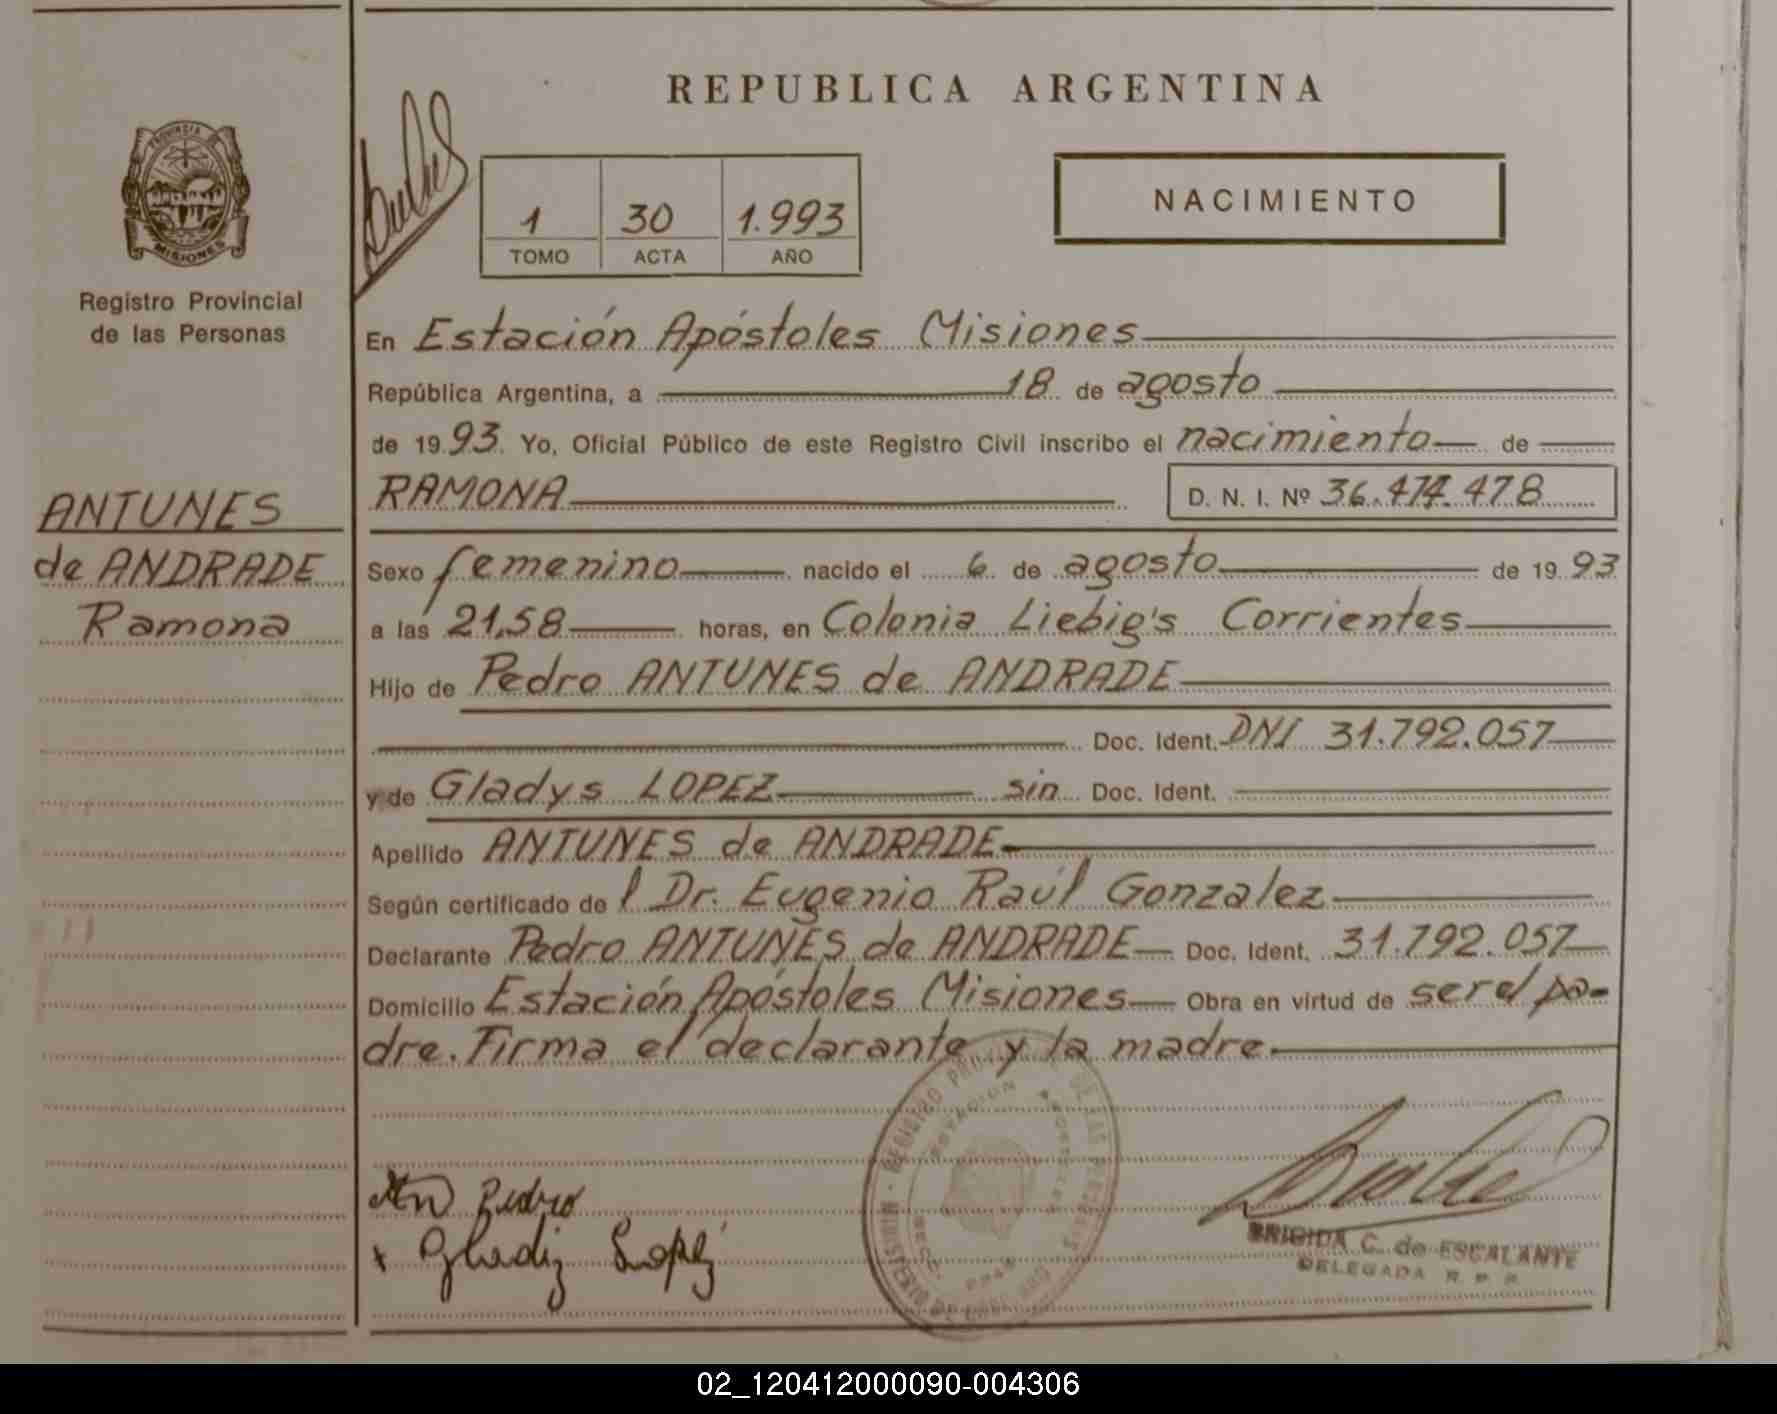 REPUBLICA ARGENTINA
PROVINCIA DE
MISIONES
Registro Provincial
de las Personas
1 30 1.993
TOMO ACTA AÑO
NACIMIENTO
En Estación Apóstoles Misiones
República Argentina, a 18 de agosto
de 1993. Yo, Oficial Público de este Registro Civil inscribo el nacimiento de
RAMONA D. N. I. Nº 36.474.478
ANTUNES
de ANDRADE
Ramona
Sexo femenino nacido el 6 de agosto de 1993
a las 21,58 horas, en Colonia Liebig's Corrientes
Hijo de Pedro ANTUNES de ANDRADE
Doc. Ident. DNI 31.792.057
y de Gladys LOPEZ sin Doc. Ident.
Apellido ANTUNES de ANDRADE
Según certificado de l Dr. Eugenio Raúl Gonzalez
Declarante Pedro ANTUNES de ANDRADE Doc. Ident. 31.792.057
Domicilio Estación Apóstoles Misiones Obra en virtud de ser el pa-
dre. Firma el declarante y la madre.
Pedro
x Gladiz Lopez
BRIGIDA C. de ESCALANTE
DELEGADA R. P. P.
02_120412000090-004306